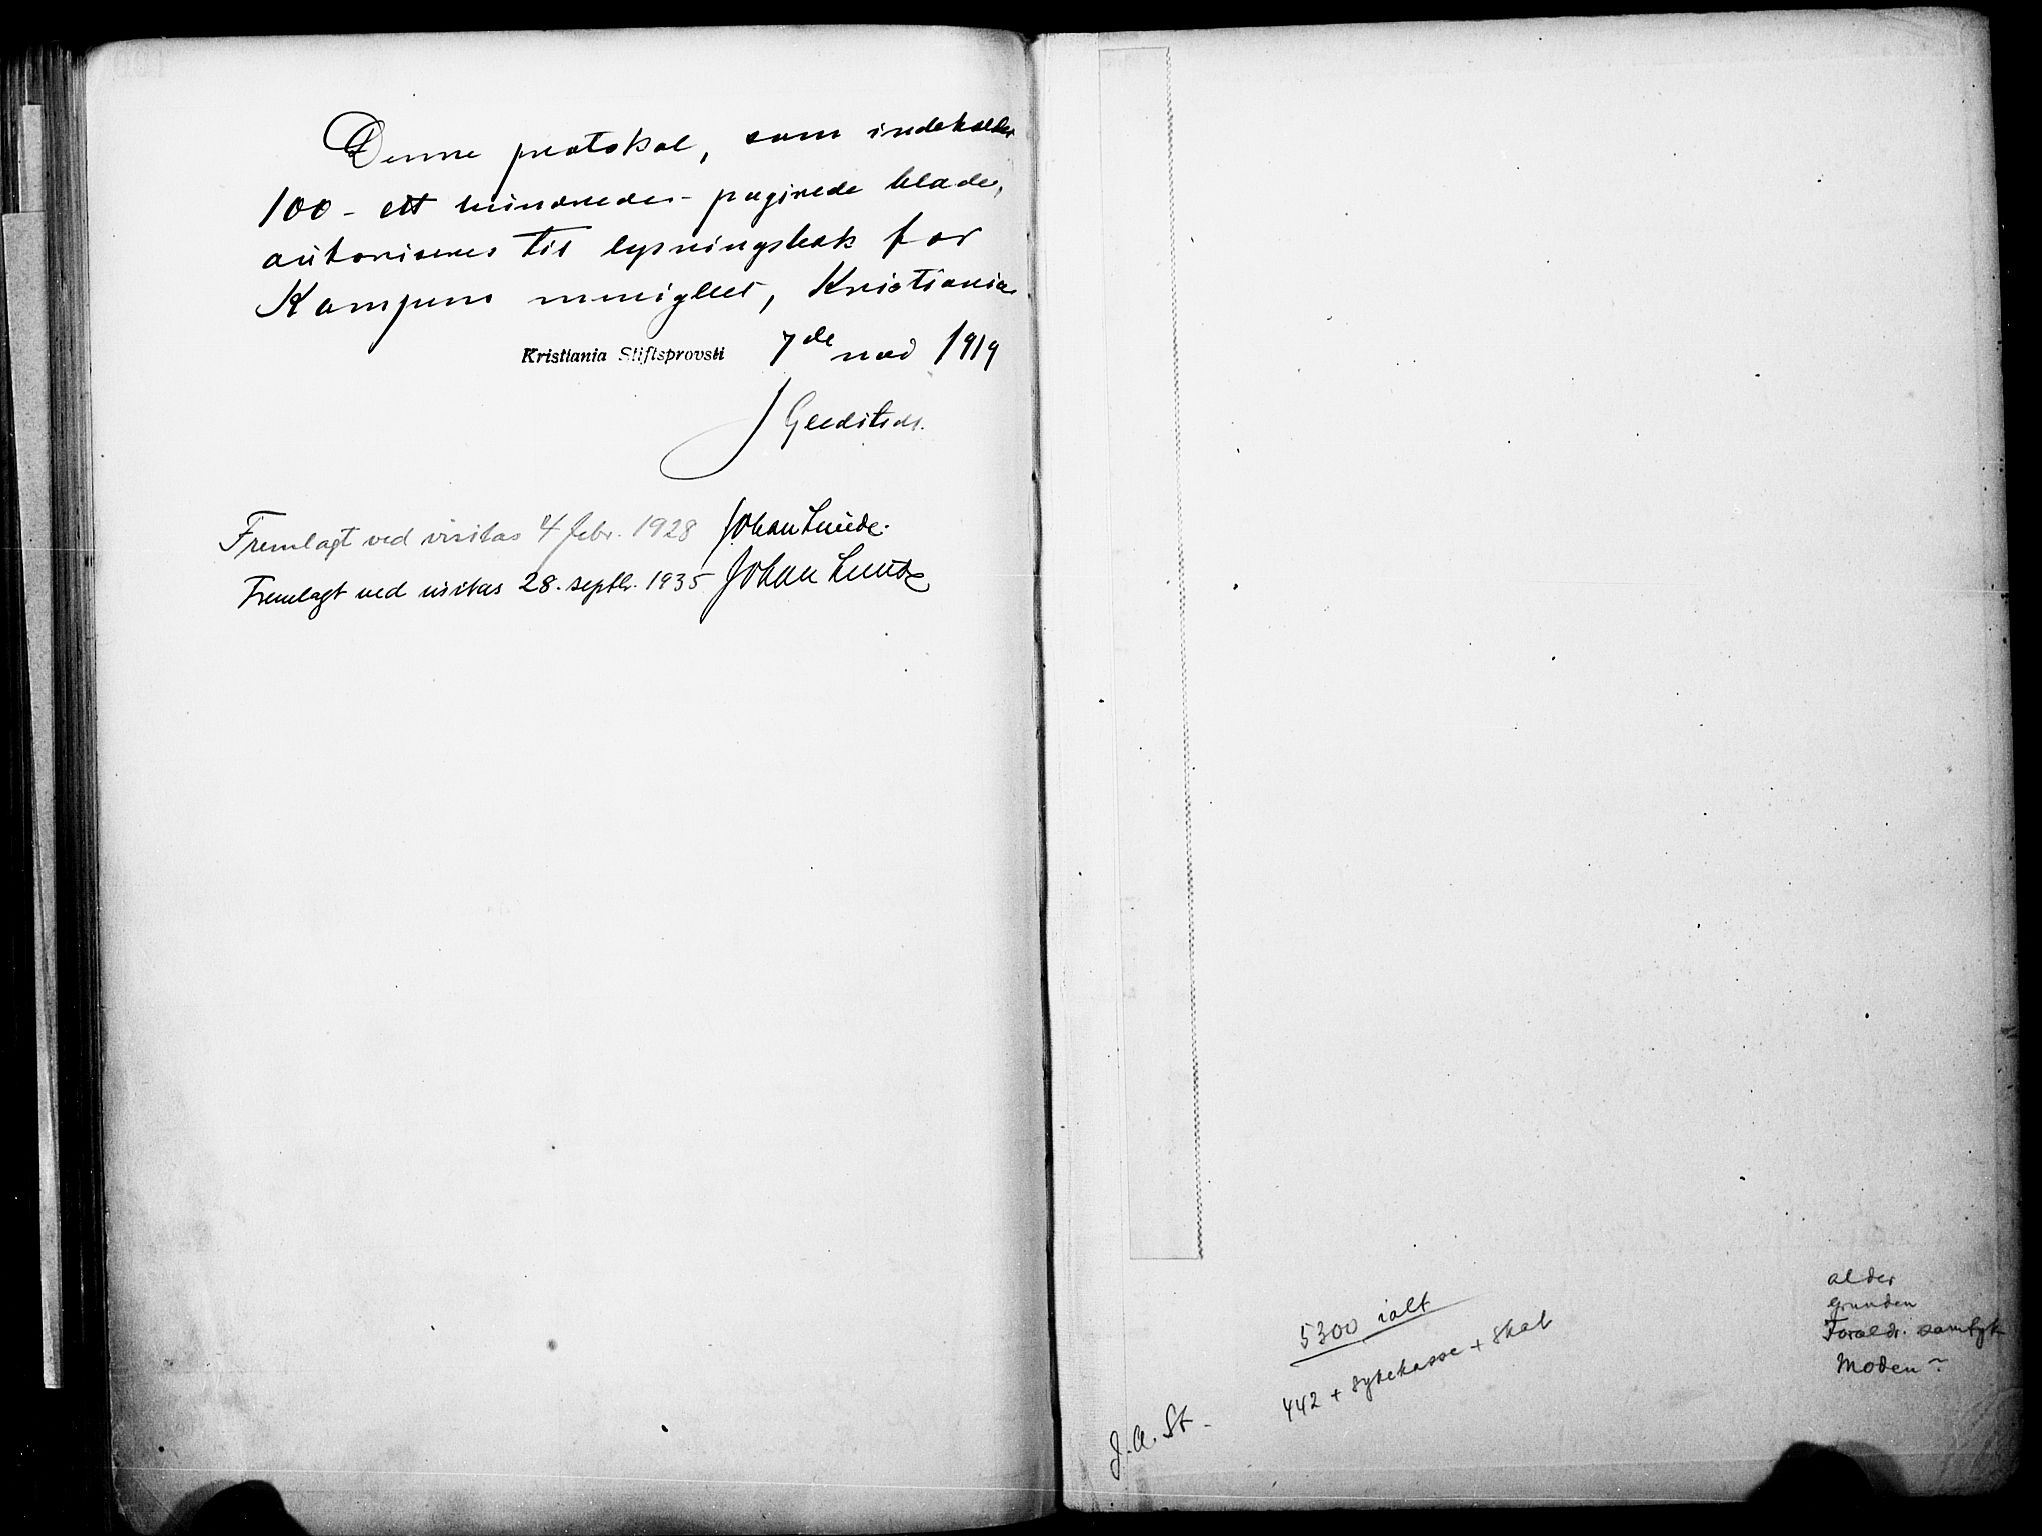 Denne protokol, som indeholder
100 - ett hundrede - paginede blade,
autoriseres til lysningsbok for
Kampens menighet, Kristiania
Kristiania Stiftsprovsti 7de nov 1919
J Gleditsch.
Fremlagt ved visitas 4 febr. 1928 Johan Lunde.
Fremlagt ved visitas 28. septbr. 1935 Johan Lunde
5300 ialt
442 + sykekasse + skat
J. A. St -
alder
grunden
Foreldr. samtyk
Moden ~